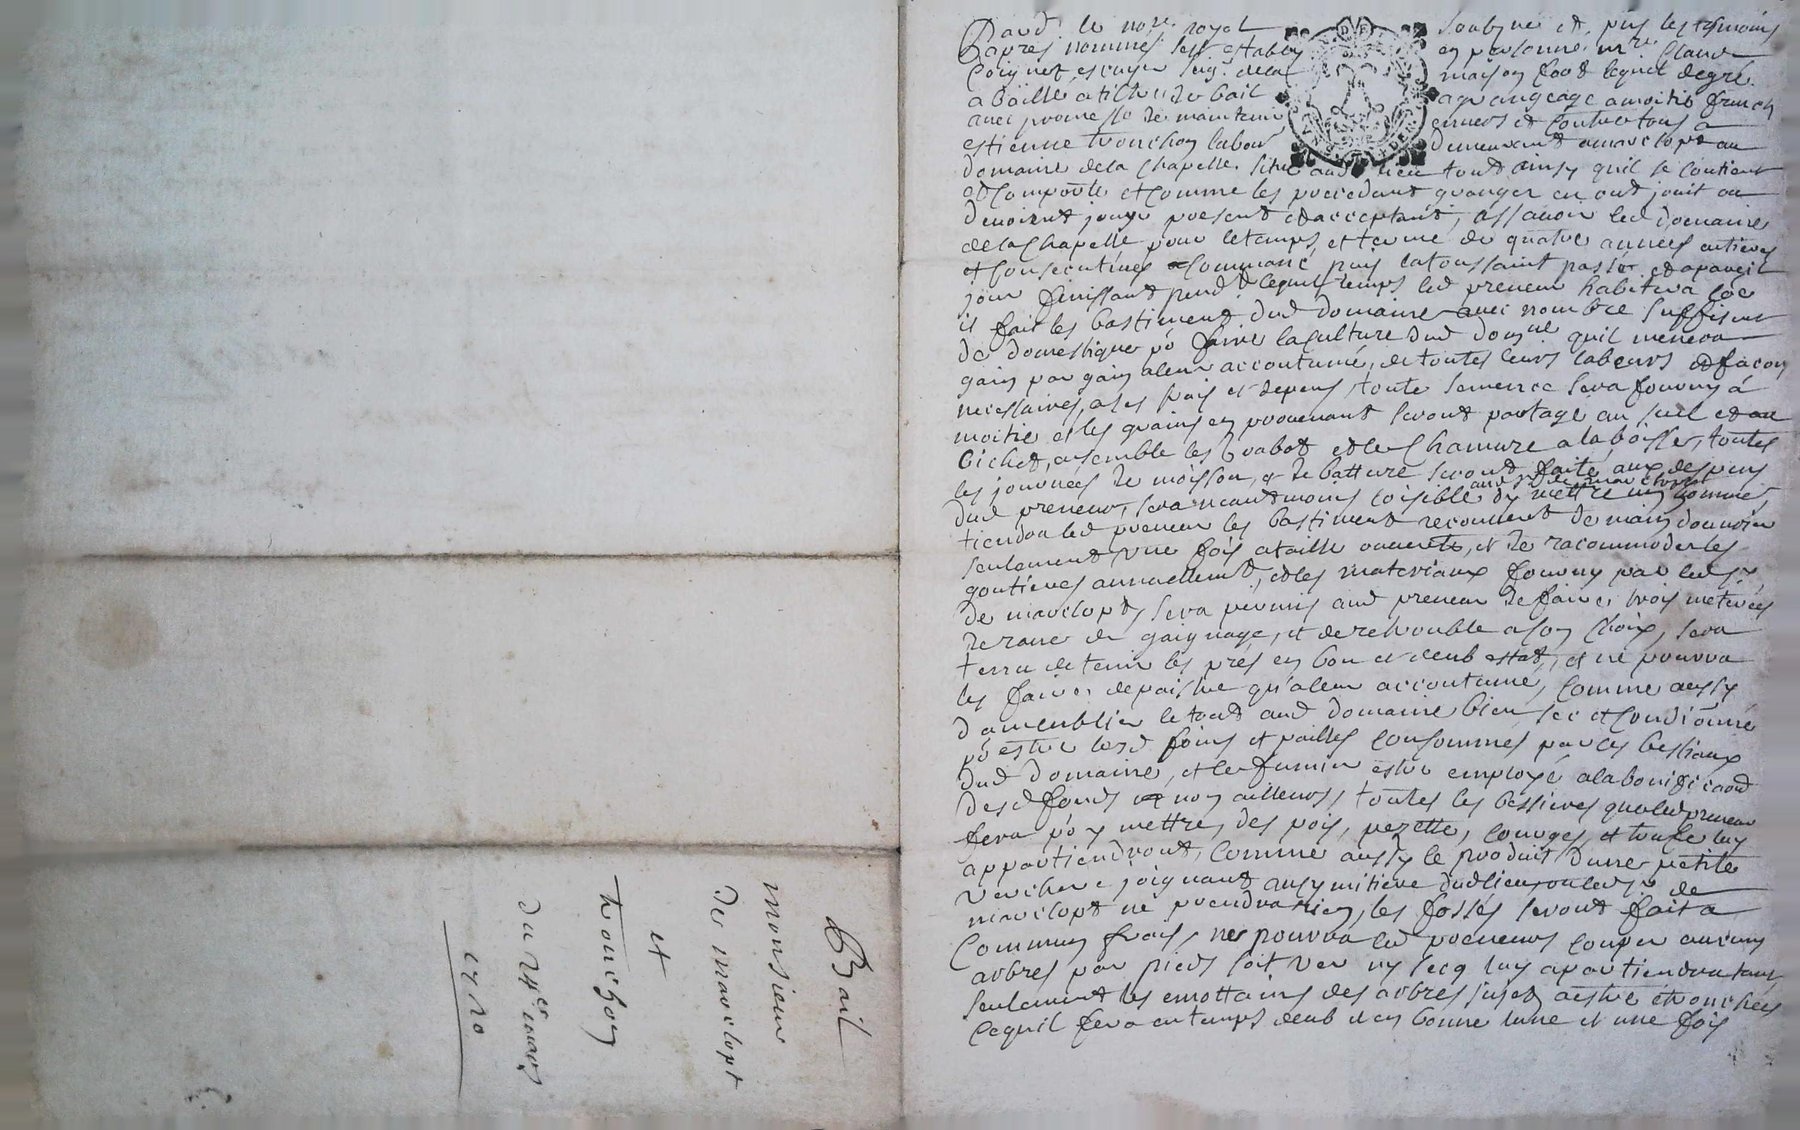 Pard. le nore. royal soubzné et puis les tesmoins
apres nommés sest estably en personne mre. Claude
Coignet escuyer seigr. dela maison fort lequel degré
a Baillé a tiltre de bail a grangeage a moitié fruich
avec promesse de maintenir envers et Contre tous a
estienne tronchon labour demeurant a marclopt au
domaine dela chapelle situé aud. lieu tout ainsy quil se Contient
et Comporte et Comme les precedant granger en ont jouit ou
devoient jouyr present et acceptant, assavoir led domaine
dela Chapelle pour le temps et terme de quatre années entieres
et Consecutives Commancé puis la toussaint passé et a pareil
jour finissant pend. lequel temps led preneur habitera
les bastiment dud domaine avec nombre suffisant
de domestique po faire la Culture dud domne quil menera
gain par gain a leur accoutumé, de toutes leurs labeurs et façon
necessaires, a ses frais et depens, toute semence sera fourny a
moitie et les grains en provenant seront partagé au seul et au
bichet, ensemble les et le Chamure a la toutes
les journées de moisson, et de batture seront faite aux despens
dud preneur, sera neantmoins loisible dy mettre un homme,
tiendra led preneur les bastiment recouvert de main douvrier
seulement une fois a taille ouverte, et de racommoder les
goutieres annuellement, et les materiaux fourny par led sr
de marclopt, sera permis aud preneur de faire trois meterées
de rave de gaignage, et de retrouble a son choix, sera
tenu de tenir les prés en bon et deub estat, et ne pourra
les faire depaistre qu'a leur accoutumé, Comme aussy
le tout aud domaine bien sec et Condicionné
po estre lesd foins et pailles consommés par les bestiaux
dud domaine, et le fumier estre employé a la bonificaon
desd fonds et non ailleurs, toutes les bessieres que led preneur
fera po y mettre des pois, pezette, Courges, et luy
appartiendront, Comme aussy le produit dune petite
verchere joignant au symitiere dud lieu ou led sr de
marclopt ne prendra rien, les fossés seront fait a
Commun frais, ne pourra led preneur couper aucuns
arbres par pieds soit ver ny secq luy apartiendra tant
seulement les emottains des arbres sujet a estre etronchés
Cequil fera en temps deub et en bonne lune et une fois
Bail
monsieur
de marclopt
et
tronchon
du 24er mars
1710